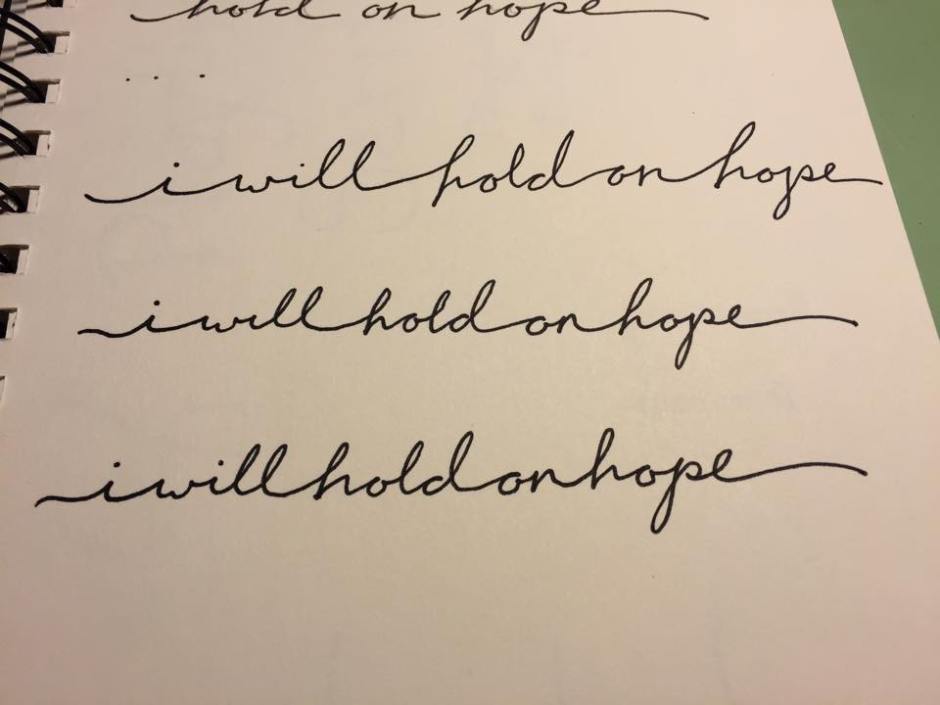 hold on hope
...
i will hold on hope
i will hold on hope
i will hold on hope